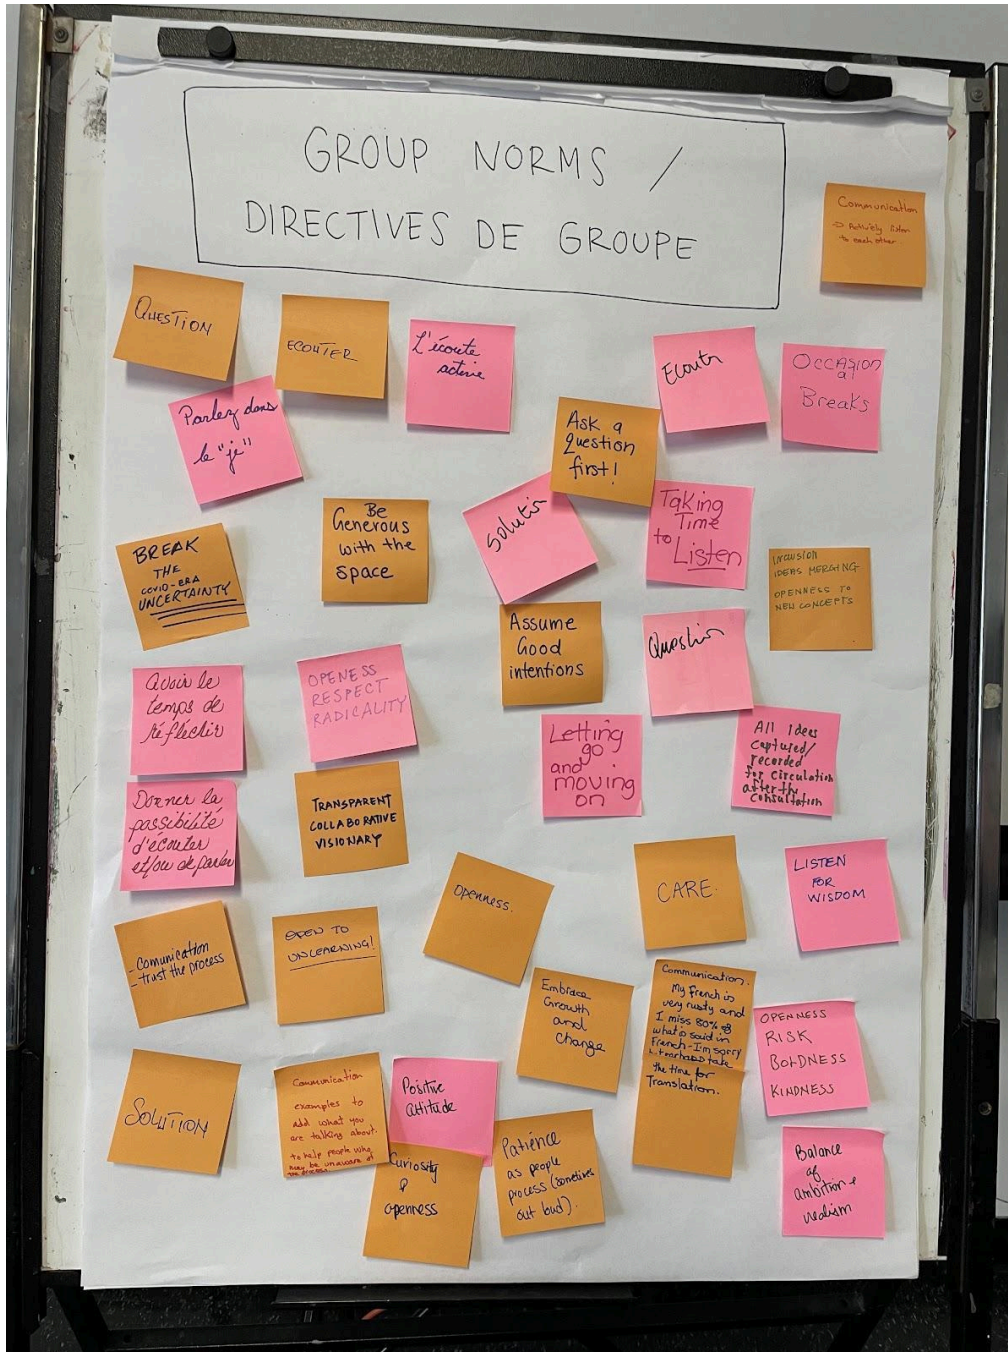 GROUP NORMS /
DIRECTIVES DE GROUPE
Communication
→ Actively listen
to each other.
QUESTION
ECOUTER
L'écoute
active
Ecouter
OCCASION
al
Breaks
Parlez dans
le "je"
Ask a
Question
first!
BREAK
THE
COVID-ERA
UNCERTAINTY
Be
Generous
with the
space
Solution
Taking
Time
to Listen
INCLUSION
IDEAS MERGING
OPENNESS TO
NEW CONCEPTS
Assume
Good
intentions
Question
Avoir le
temps de
réfléchir
OPENESS
RESPECT
RADICALITY
Letting
go
and
moving
on
All Ideas
captured/
recorded
for circulation
after the
consultation
Donner la
possibilité
d'écouter
et/ou de parler
TRANSPARENT
COLLABORATIVE
VISIONARY
Openness.
CARE.
LISTEN
FOR
WISDOM
- Comunication
- trust the process
OPEN TO
UNLEARNING!
Embrace
Growth
and
Change
Communication.
My French is
very rusty and
I miss 80% of
what is said in
French - I'm sorry
take
the time for
Translation.
OPENNESS
RISK
BOLDNESS
KINDNESS
SOLUTION
Communication
examples to
add what you
are talking about.
to help people who
may be unaware of
Positive
attitude
Curiosity
&
openness
Patience
as people
process (sometimes
out loud).
Balance
of
ambition +
realism